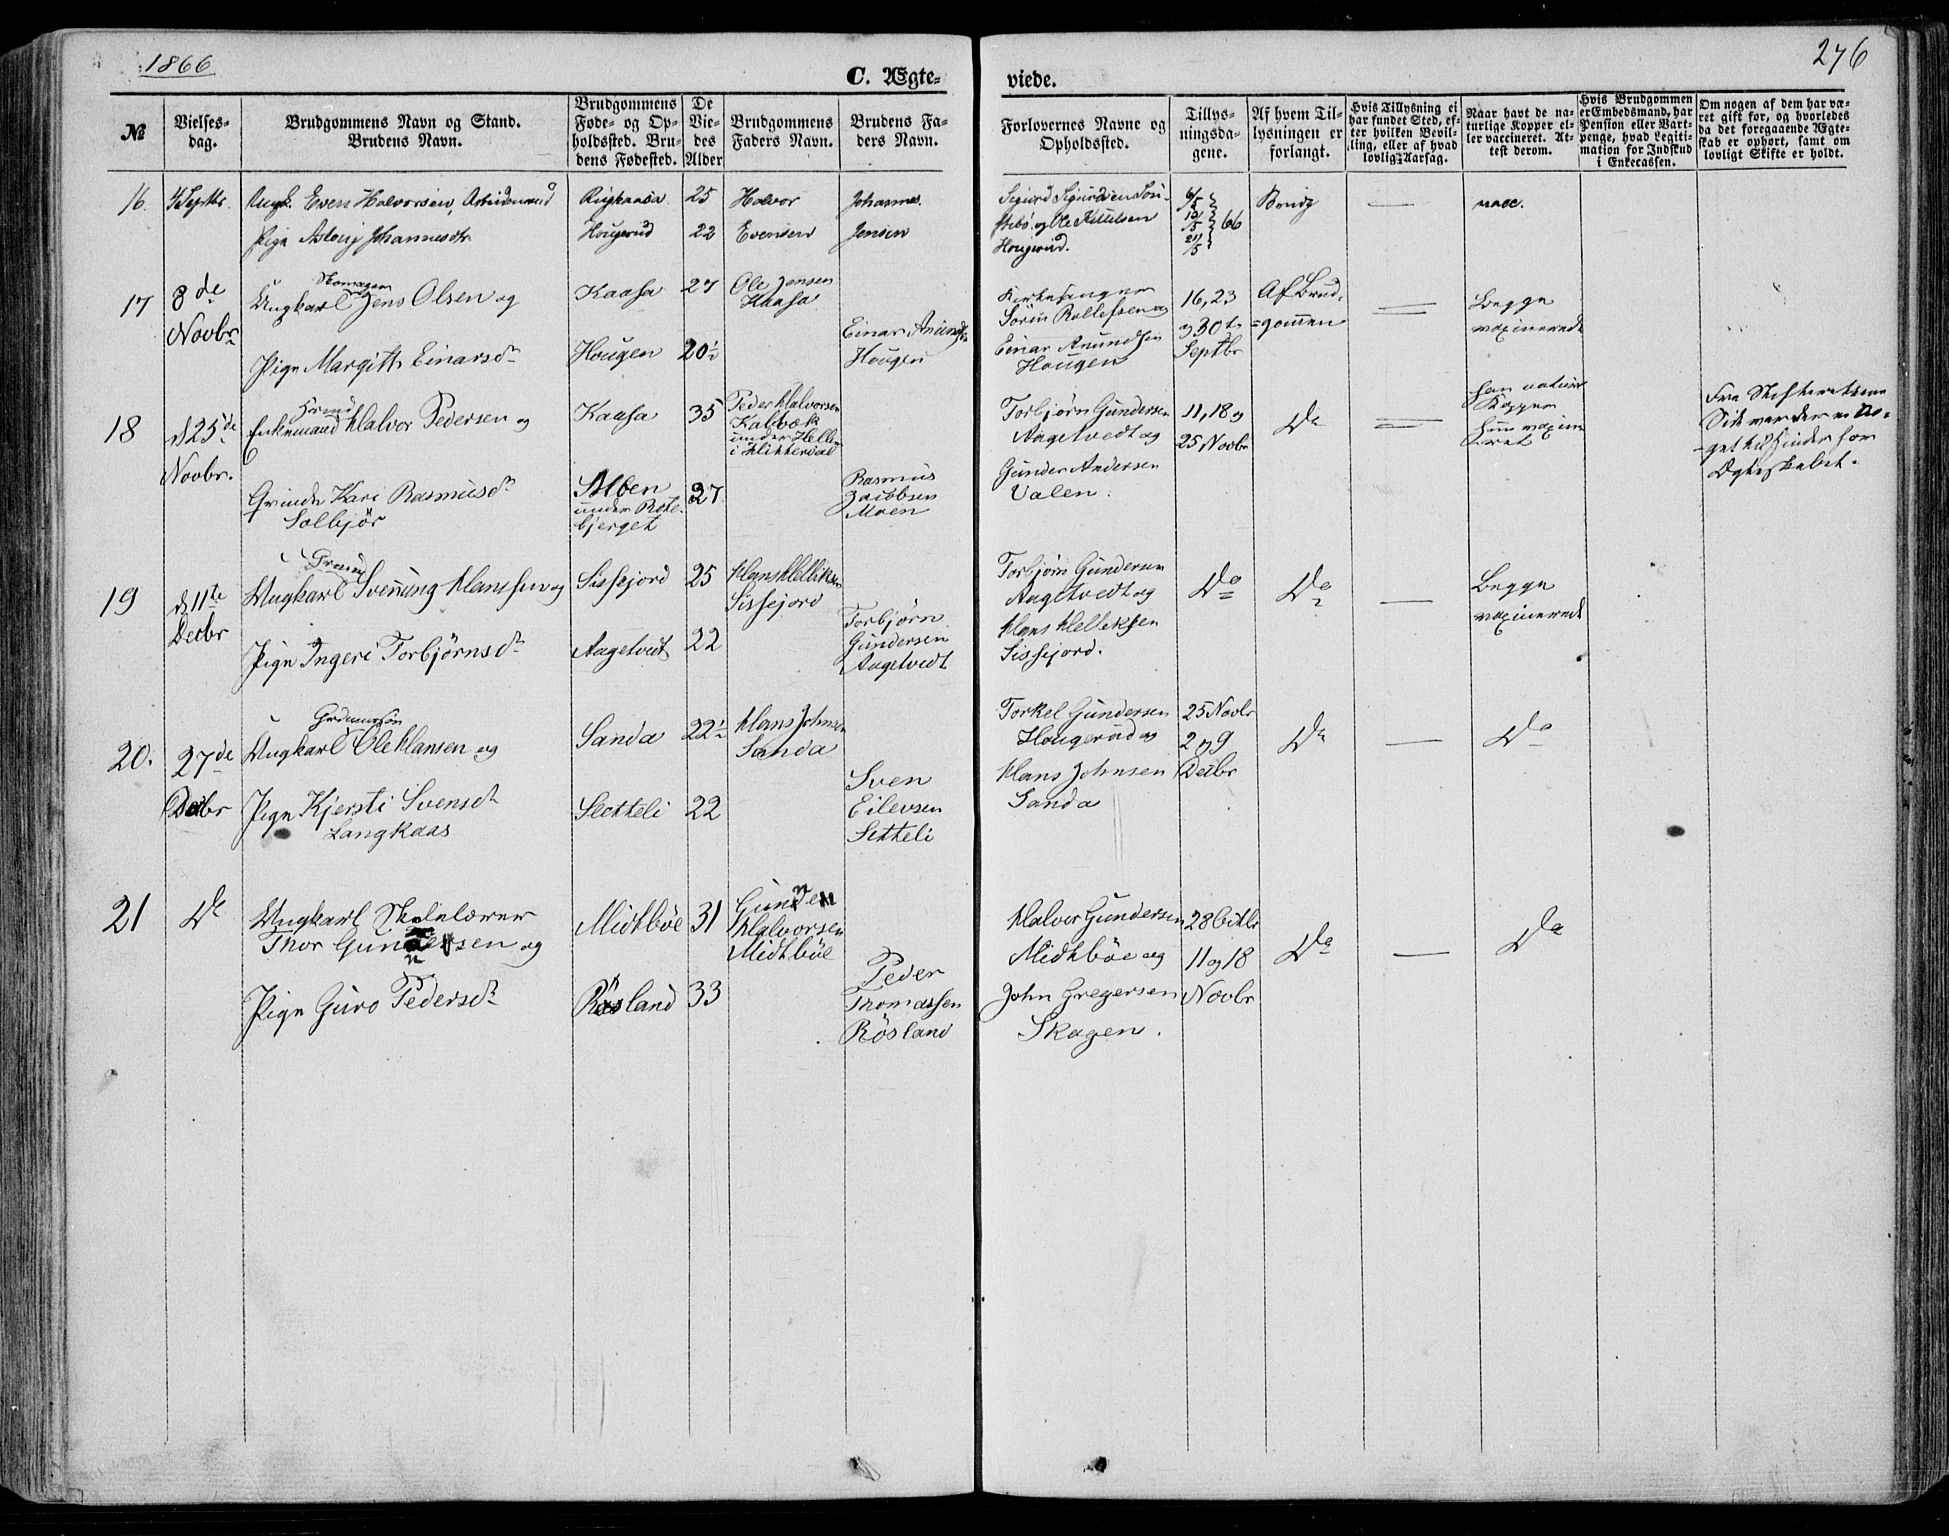 1866
276
C. Ægte-
viede.
№
Vielses-
dag.
Brudgommens Navn og Stand.
Brudens Navn.
Brudgommens
Føde- og Op-
holdssted. Bru-
dens Fødested.
De
Vie-
des
Alder
Brudgommens
Faders Navn.
Brudens Fa-
ders Navn.
Forlovernes Navne og
Opholdssted.
Tillys-
ningsda-
gene.
Af hvem Til-
lysningen er
forlangt.
Hvis Tillysning ei
har fundet Sted, ef-
ter hvilken Bevil-
ling, eller af hvad
lovlig Aarsag.
Naar havt de na-
turlige Kopper el-
ler vaccineret. At-
test derom.
Hvis Brudgommen
er Embedsmand, har
Pension eller Vart-
penge, hvad Legiti-
mation for Indskud
i Enkecassen.
Om nogen af dem har væ-
ret gift før, og hvorledes
da det foregaaende Ægte-
skab er ophørt, samt om
lovligt Skifte er holdt.
16.
Septbr.
Ungk. Even Halvorsen, Arbeidsmand
Pige Asloug Johannesdtr
Hougerud
25
22
Halvor
Evensen
Johannes
Jensen
Ole
Hougerud.
66
Brudg
—
vacc.
17
8de
Novbr
Ungkarl Jens Olsen og
Pige Margith Einarsdr
Kaasa
Hougen
27
20½
Ole Jensen
Kaasa
Einar Anunds.
Hougen
Kirkesanger
Sørin Rollefsen og
Einar Anundsen
Hougen
16, 23
og 30te
Septbr
Af Brud-
=gommen
—
Begge
vaxinerede
18
d 25de
Novbr.
Enkemand Halvor Pedersen og
Qvinde Kari Rasmusdr
Solbjør
Kaasa
Moen
under Rote-
bjerget
35
27
Peder Halvorsen
Kalbæk
under Helle
i Hitterdal
Rasmus
Jacobsen
Moen
Torbjørn Gundersen
Aagetvedt og
Gunder Andersen
Valen.
11, 18 og
25 Novbr
Do
—
Han naturl
Kopper
Hun vaxine
ret
Fra Skifterettens
Side var der ei no-
get til Hinder for
Ægteskabet.
19
d 11te
Decbr
Ungkarl Svenung Hanssen og
Pige Ingeri Torbjørnsdr
Sissejord
Aagetvedt
25
22
Hans Helliksen
Sissejord
Torbjørn
Gundersen
Aagetvedt
Torbjørn Gundersen
Aagetvedt og
Hans Helliksen
Sissejord.
Do
Do
—
Begge
vaxinerede
20.
27de
Decbr
Gaardmandssøn
Ungkarl Ole Hansen og
Pige Kjersti Svensdr
Langkaas
Sanda
Sletteli
22½
22
Hans Johnsen
Sanda
Sven
Eilevsen
Sletteli
Torkel Gundersen
Hougerud og
Hans Johnsen
Sanda
25 Novbr
2 og 9
Decbr
Do
—
Do
21
Do
Ungkarl Skolelærer
Thor Gunnersen og
Pige Guro Pedersdr
Midtbøe
Røsland
31
33
Gunnen
Halvorsen
Midtbøe
Peder
Thomassen
Røsland
Halvor Gundersen
Midtbøe og
John Gregersen
Skogen.
28 Octbr
11 og 18
Novbr
Do
—
Do